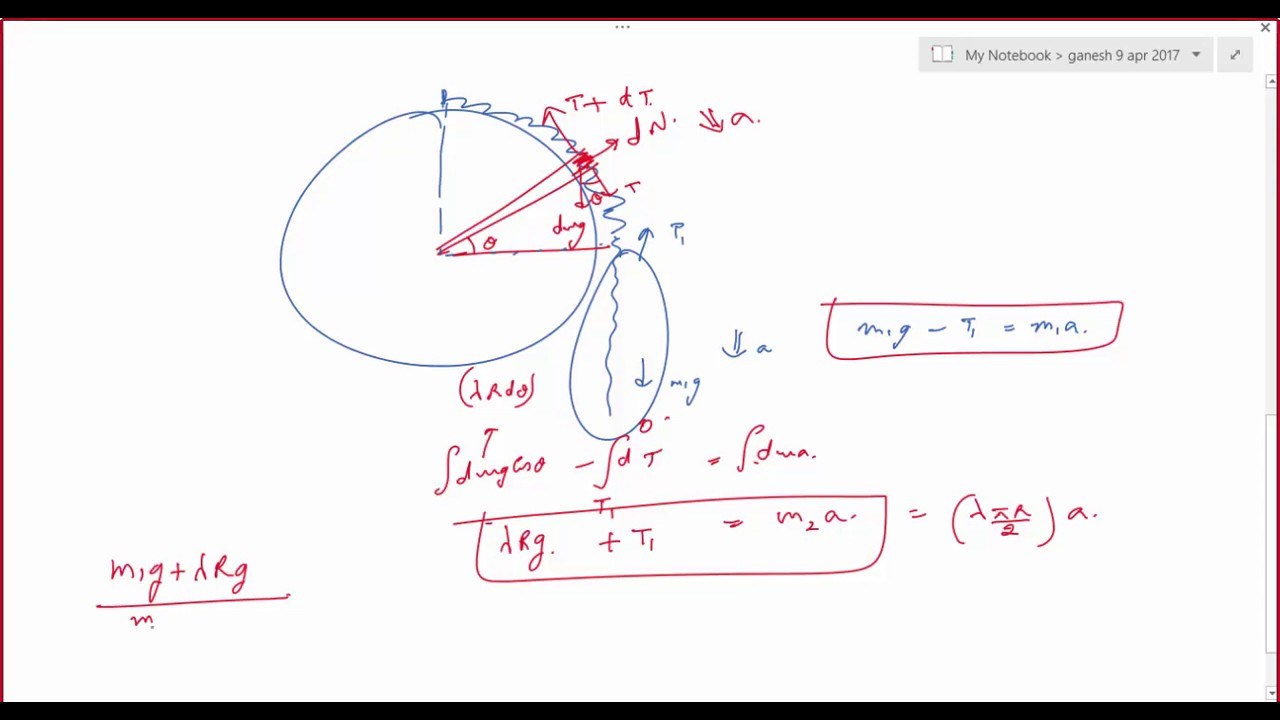 My Notebook > ganesh 9 apr 2017
T + dT
dN.
⇓a.
T
θ
dmg
θ
T₁
m₁g − T₁ = m₁a.
⇓ a
m₁g
(λRdθ)
∫dmg cosθ − ∫_{T₁}^{0} dT = ∫dma.
λRg. + T₁ = m₂a. = (λπR/2) a.
m₁g + λRg
m